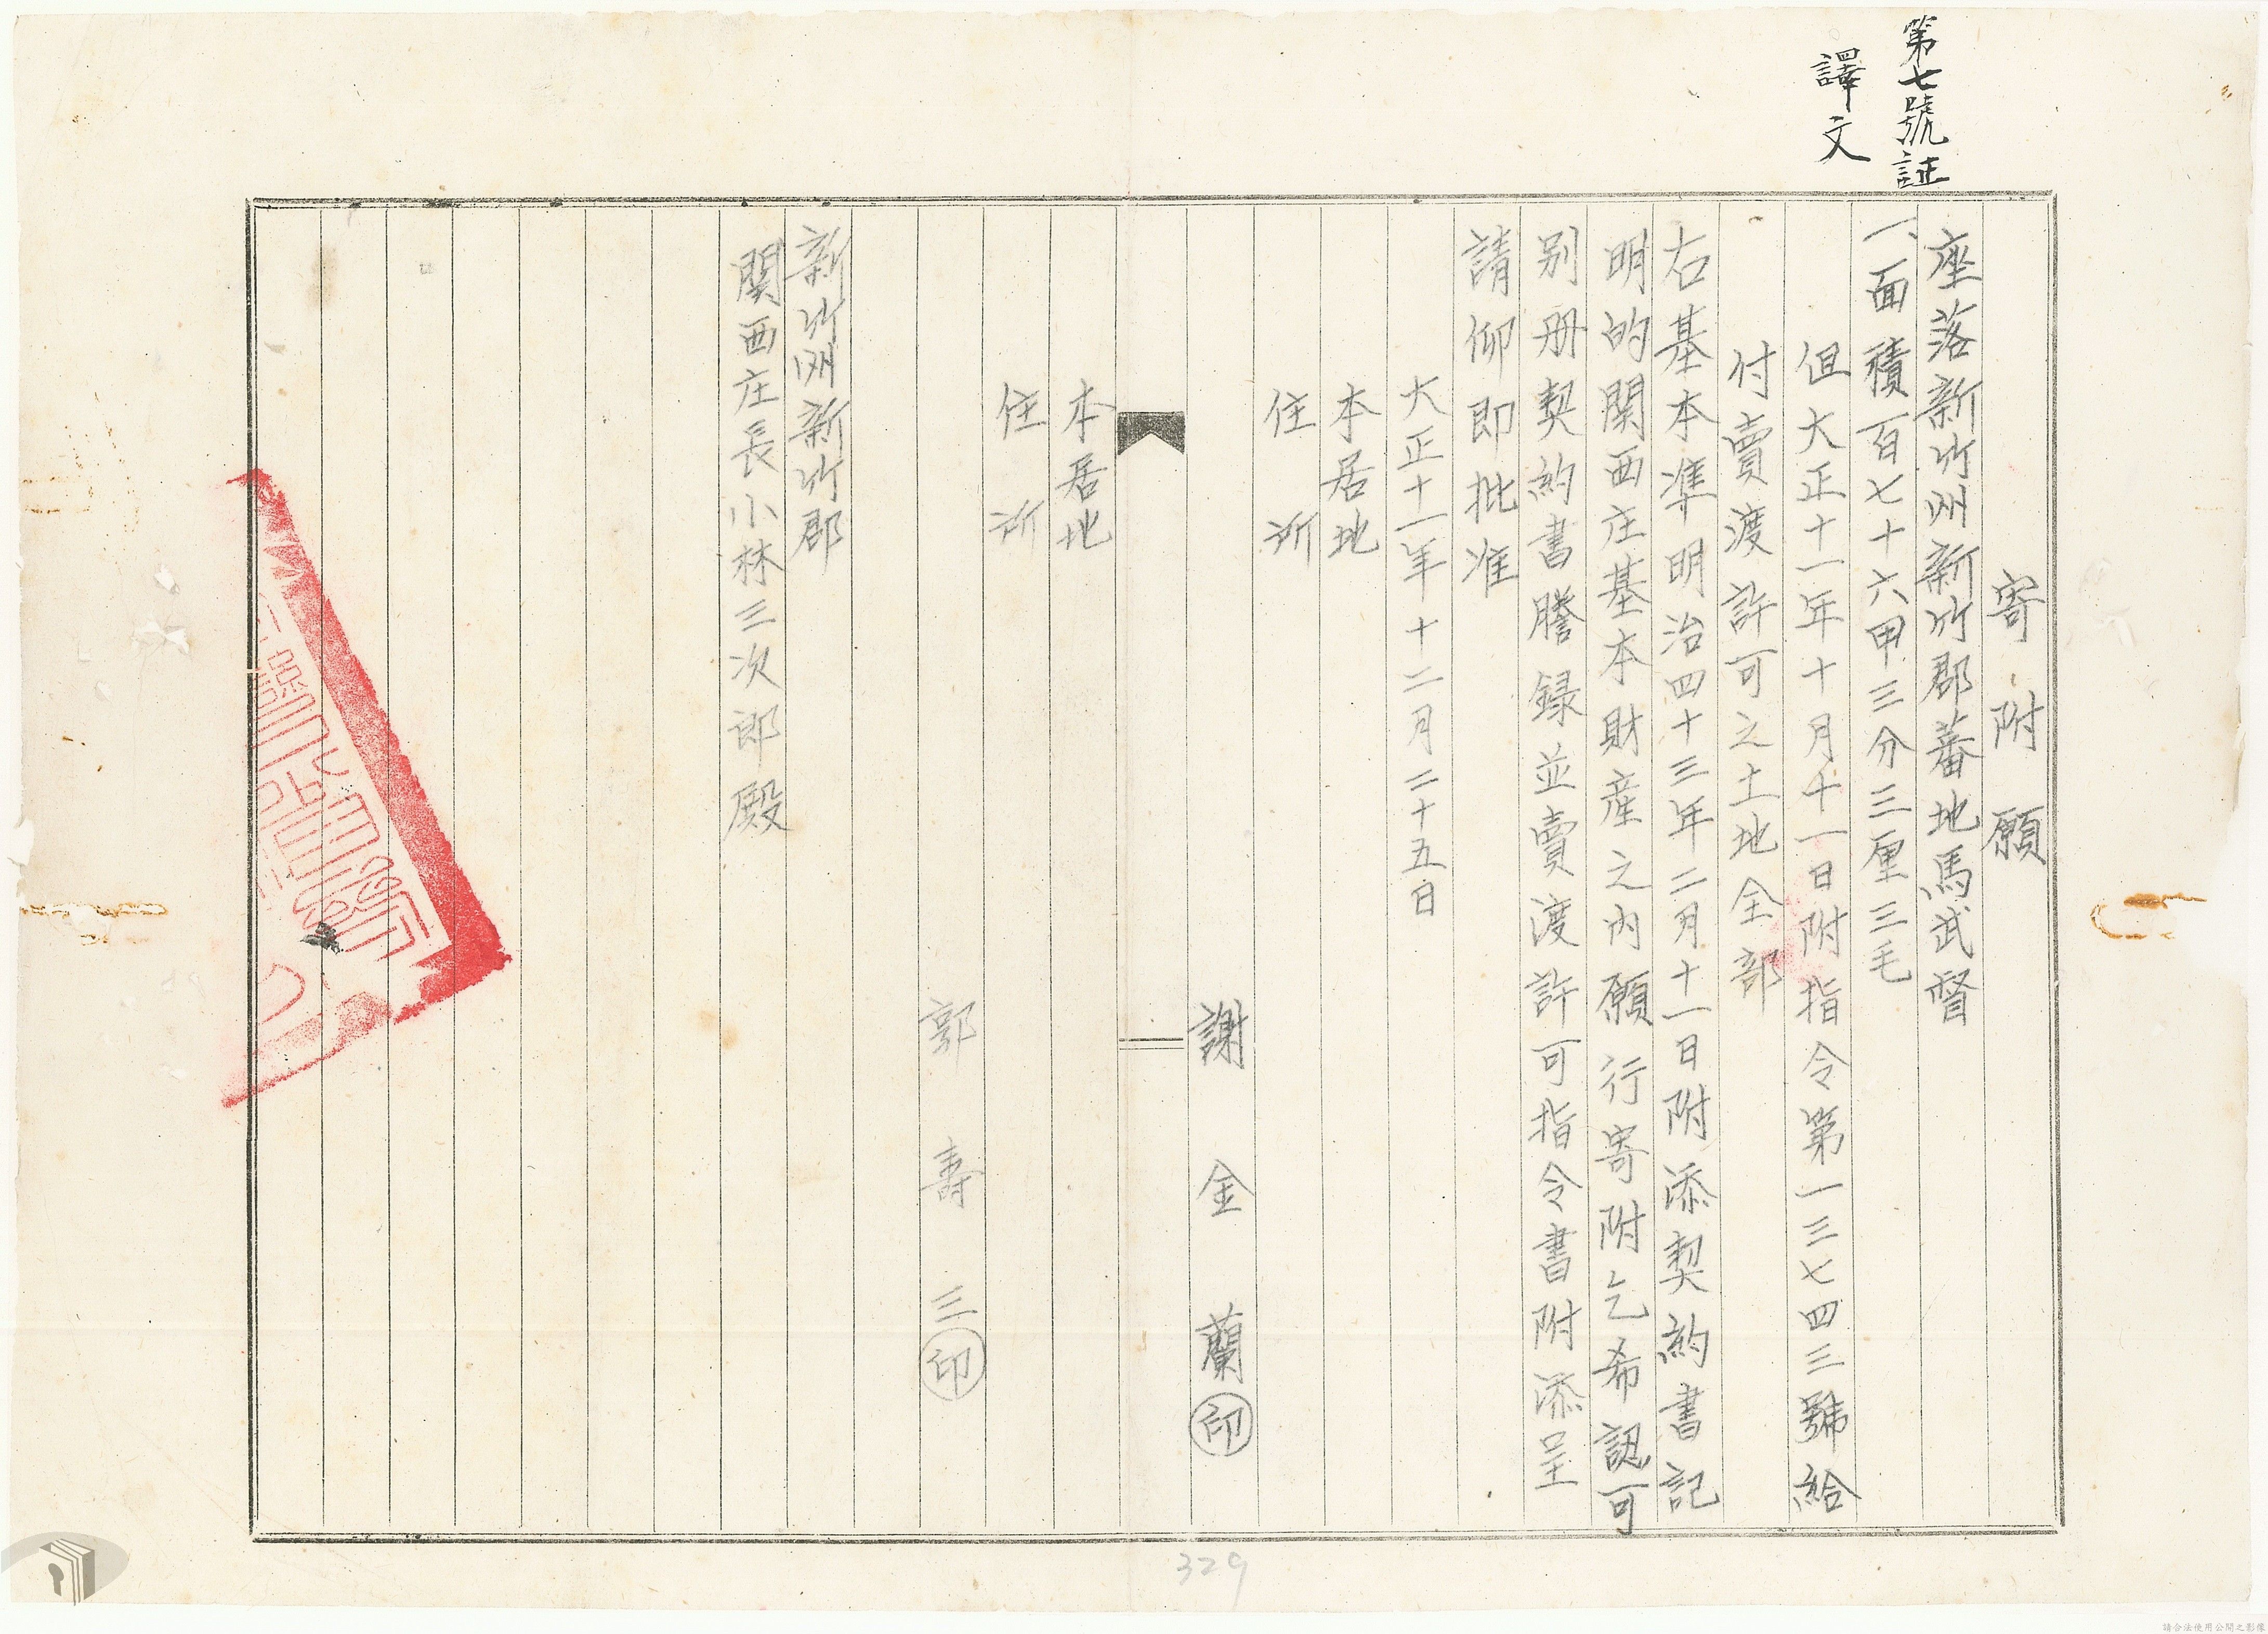 第七號証
譯文
寄附願
座落新竹州新竹郡蕃地馬武督
一、面積百七十六甲三分三厘三毛
但大正十一年十月十一日附指令第一三七四三號給
付賣渡許可之土地全部
右基本準明治四十三年二月十一日附添契約書記
明的関西庄基本財産之內願行寄附乞希認可
別册契約書謄録並賣渡許可指令書附添呈
請仰即批准
大正十一年十二月二十五日
本居地
住所
謝金蘭印
本居地
住所
郭壽三印
新竹州新竹郡
関西庄長小林三次郎殿
329
請合法使用公開之影像